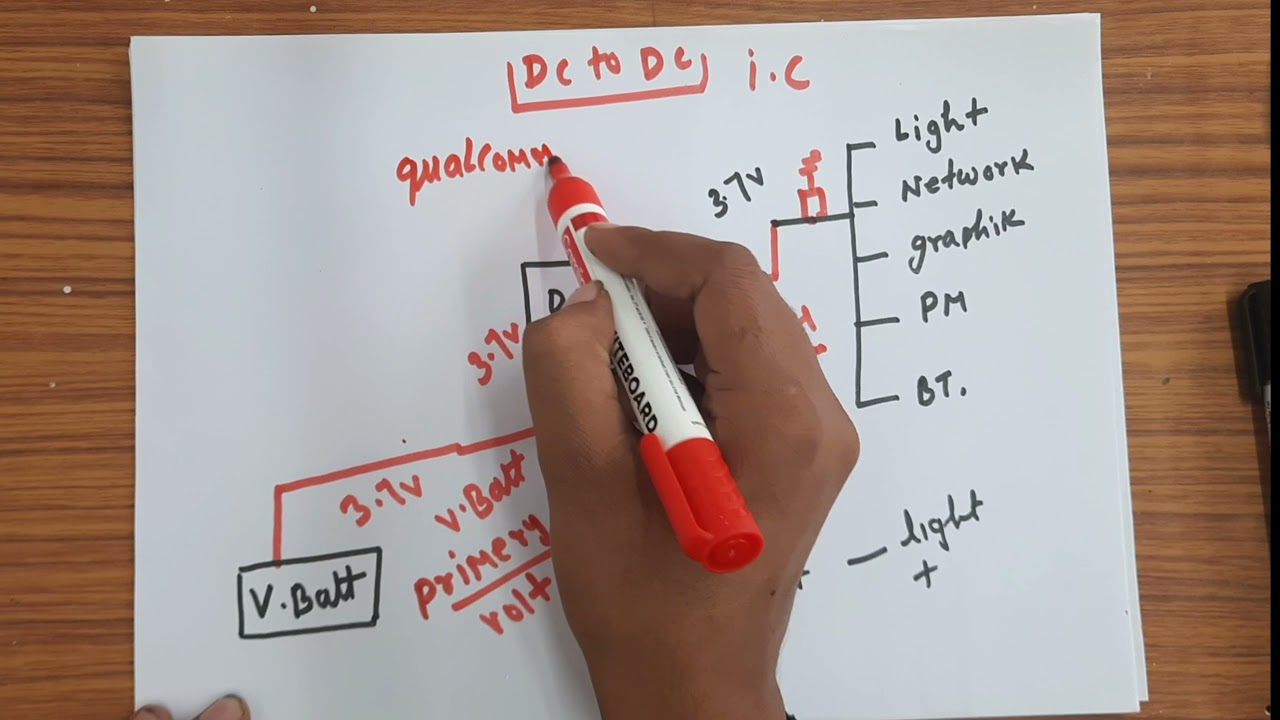 DC to DC i.c
qualcomm
Light
3.7V
Network
graphik
PM
BT.
3.7V
3.7V
V.Batt
primery
volt
V.Batt
light
+